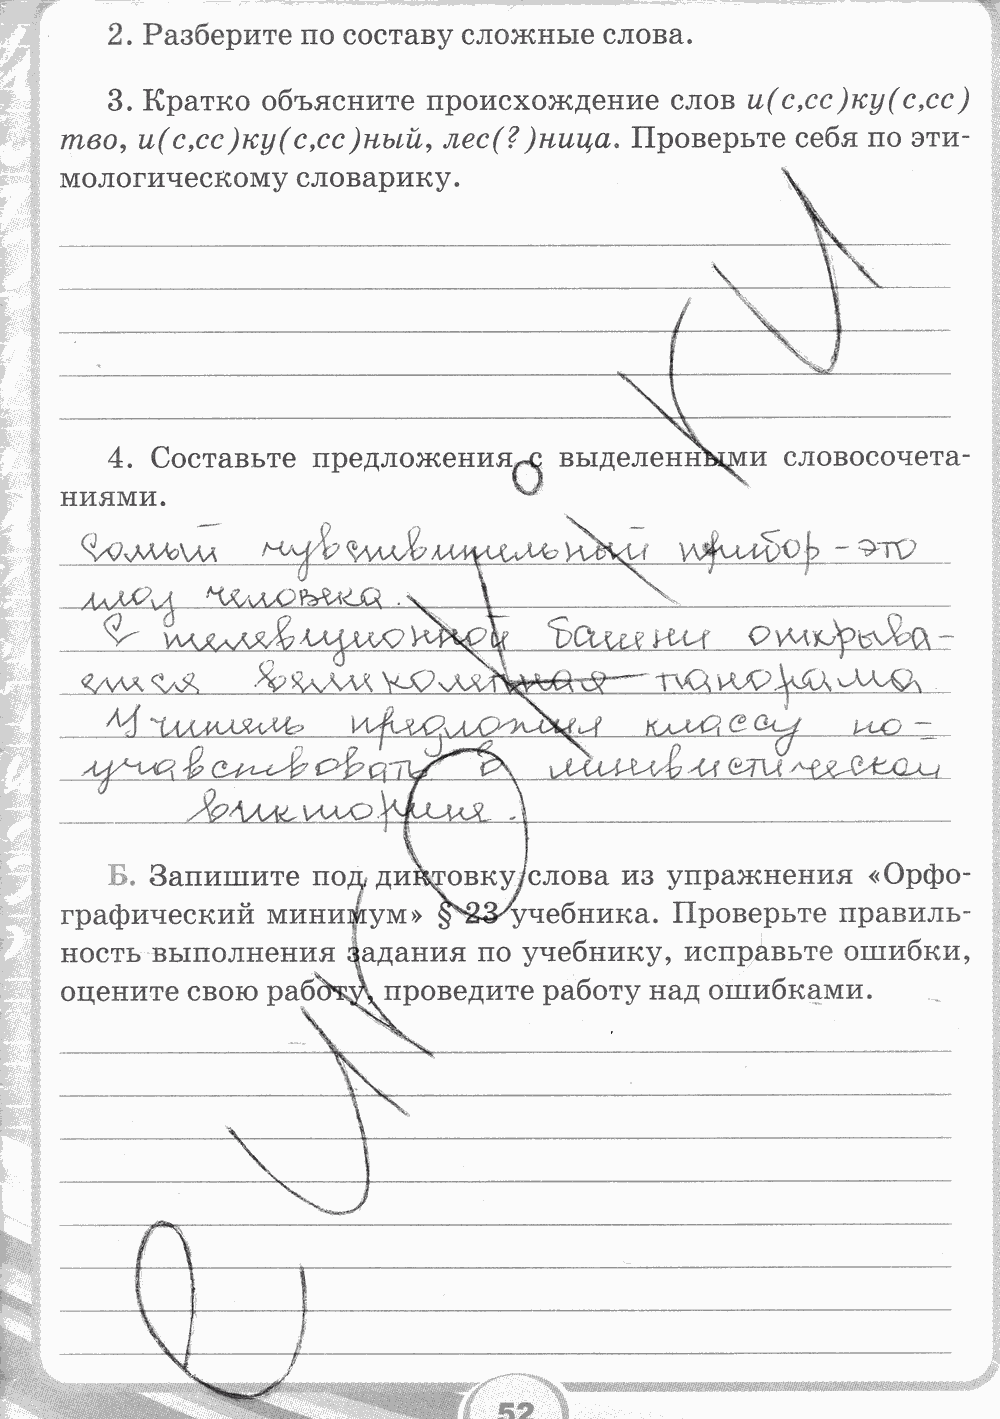 2. Разберите по составу сложные слова.
3. Кратко объясните происхождение слов и(с,сс)ку(с,сс)
тво, и(с,сс)ку(с,сс)ный, лес(?)ница. Проверьте себя по эти-
мологическому словарику.
4. Составьте предложения с выделенными словосочета-
ниями.
Самый чувствительный прибор - это
человека.
С телевизионной башни открыва-
ется великолепная панорама
Учитель предложил классу по-
учавствовать в лингвистической
викторине.
Б. Запишите под диктовку слова из упражнения «Орфо-
графический минимум» § 23 учебника. Проверьте правиль-
ность выполнения задания по учебнику, исправьте ошибки,
оцените свою работу, проведите работу над ошибками.
52